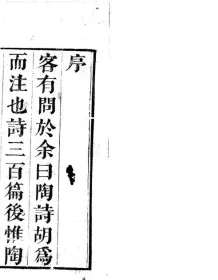 序
客有問於余曰陶詩胡爲
而注也詩三百篇後惟陶